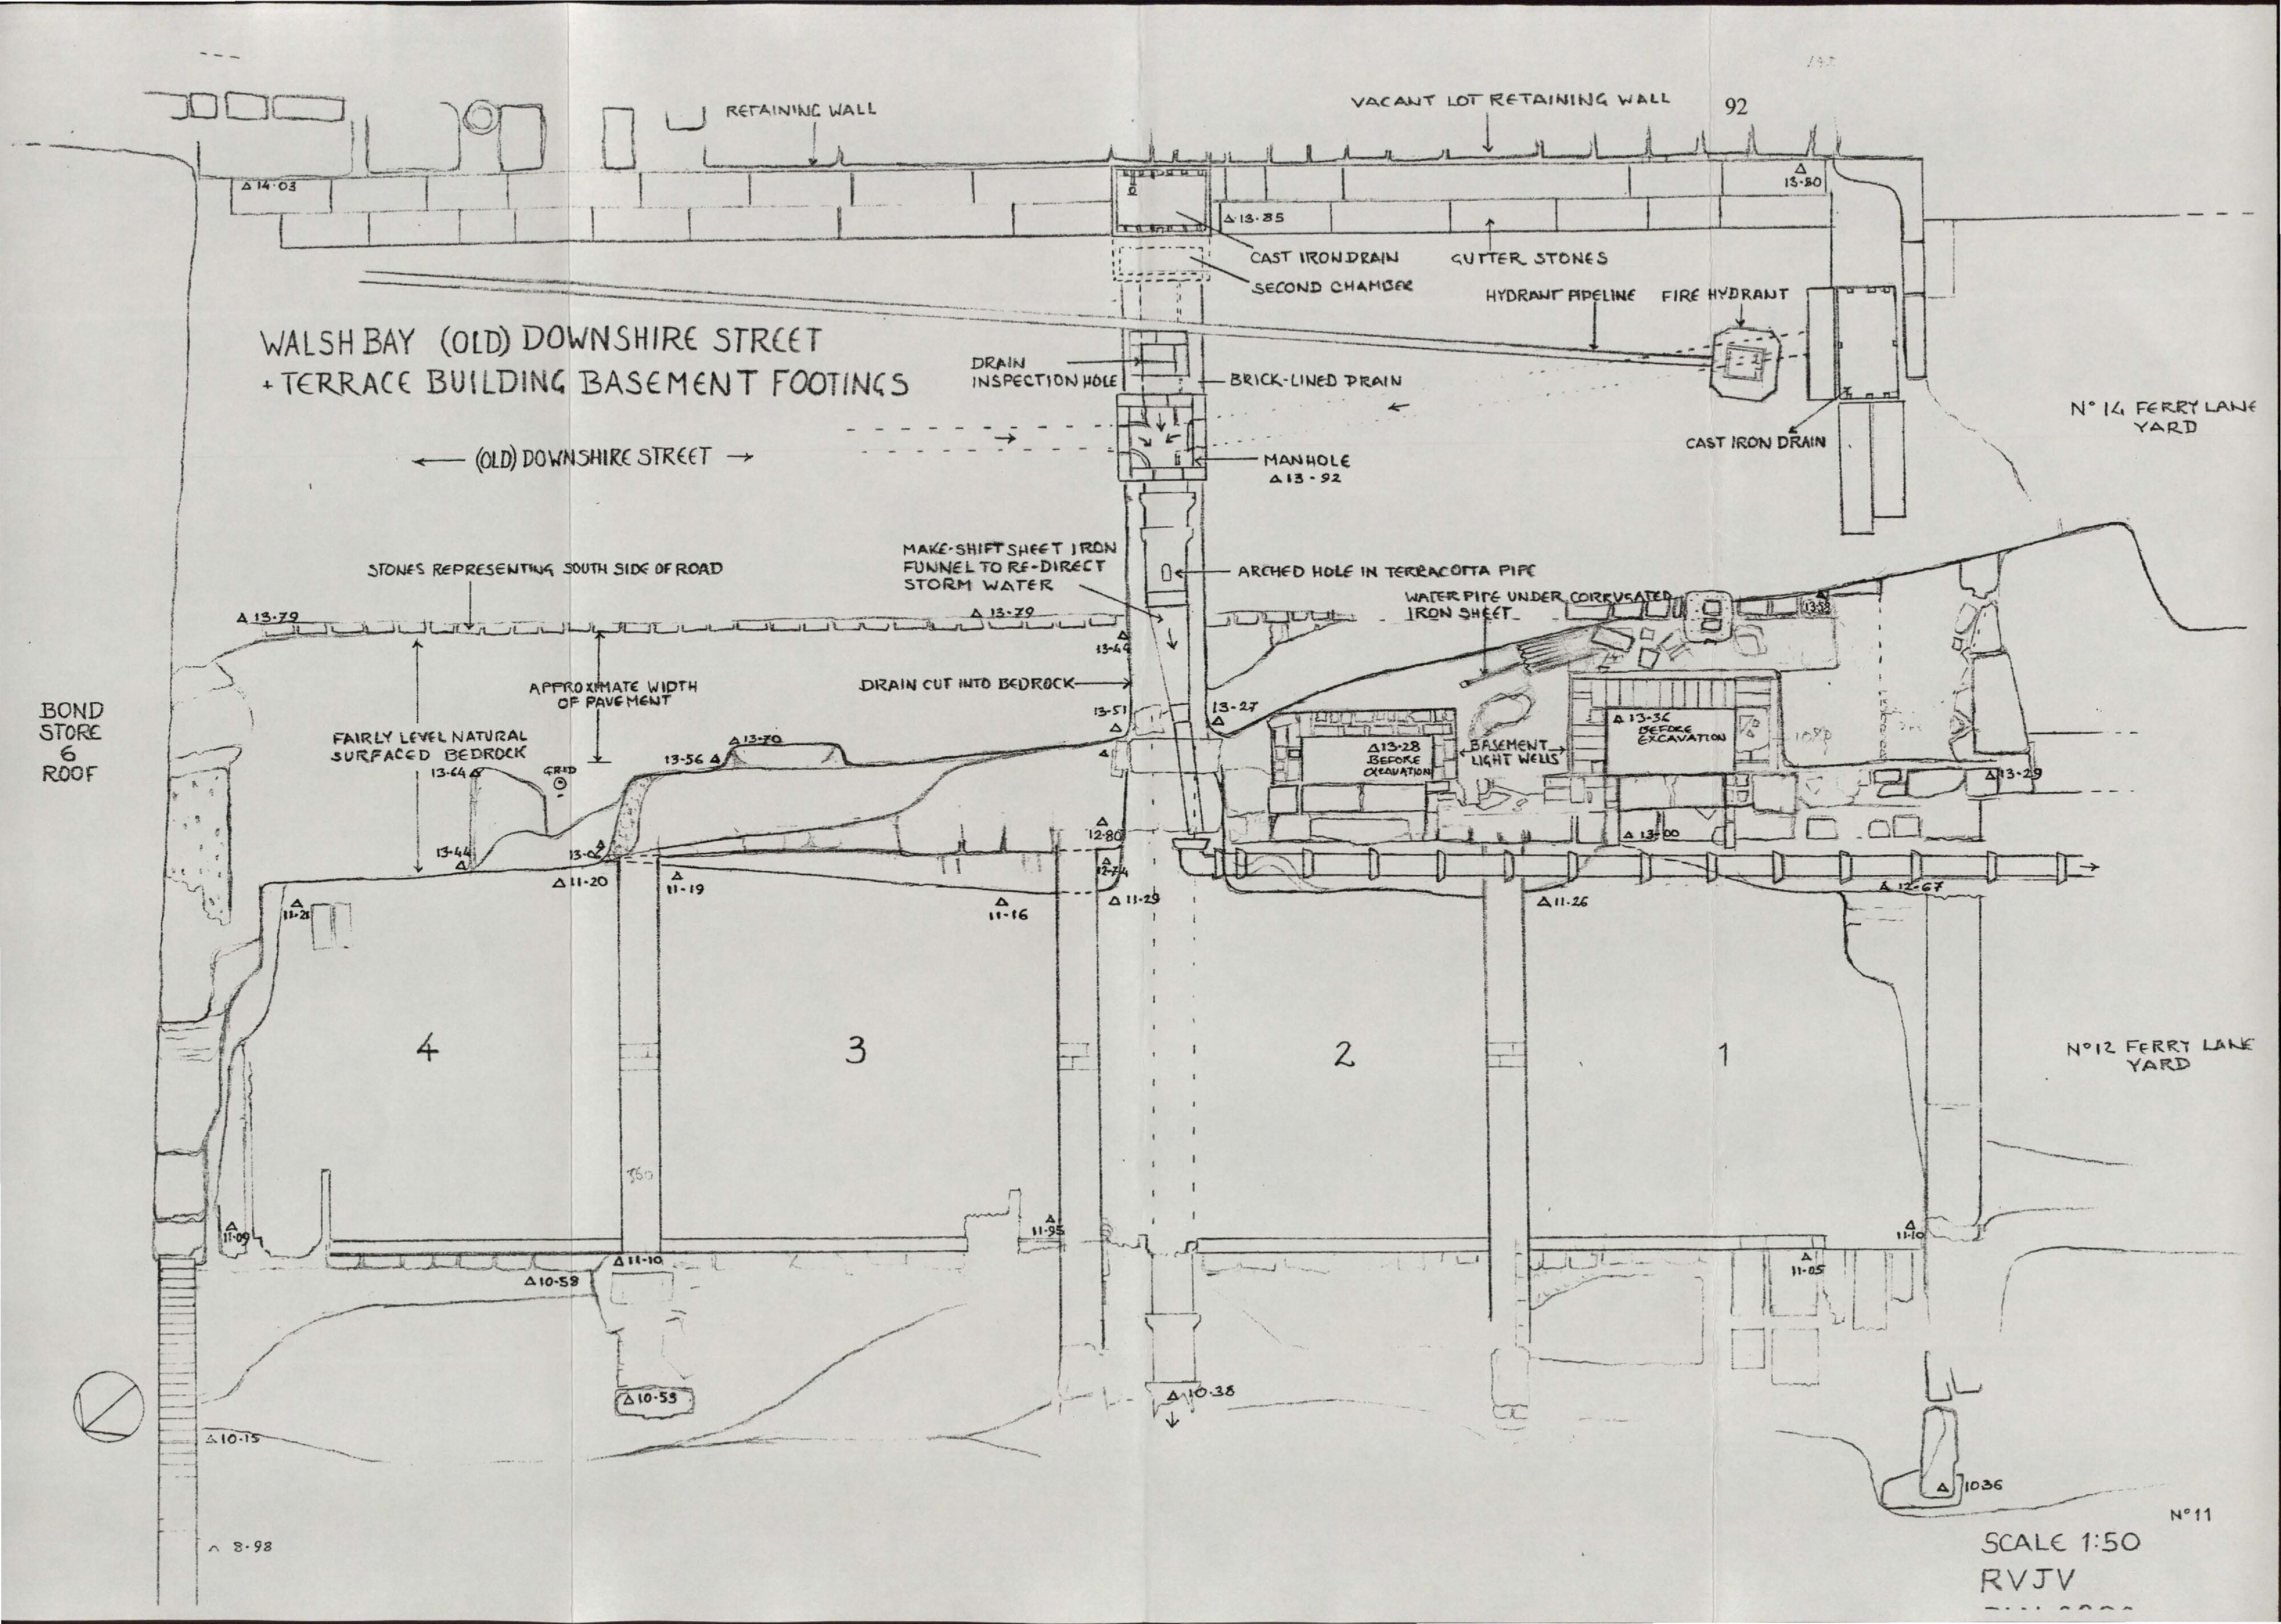 RETAINING WALL
VACANT LOT RETAINING WALL
92
14·03
13·80
13·85
CAST IRON DRAIN
GUTTER STONES
SECOND CHAMBER
HYDRANT PIPELINE
FIRE HYDRANT
WALSH BAY (OLD) DOWNSHIRE STREET
+ TERRACE BUILDING BASEMENT FOOTINGS
DRAIN
INSPECTION HOLE
BRICK-LINED DRAIN
Nº 14 FERRY LANE
YARD
CAST IRON DRAIN
← (OLD) DOWNSHIRE STREET →
MANHOLE
13-92
MAKE-SHIFT SHEET IRON
FUNNEL TO RE-DIRECT
STORM WATER
STONES REPRESENTING SOUTH SIDE OF ROAD
ARCHED HOLE IN TERRACOTTA PIPE
WATER PIPE UNDER CORRUGATED
IRON SHEET
13-79
13-79
APPROXIMATE WIDTH
OF PAVEMENT
DRAIN CUT INTO BEDROCK
BOND
STORE
6
ROOF
13-51
13-27
13-36
BEFORE
EXCAVATION
FAIRLY LEVEL NATURAL
SURFACED BEDROCK
13-70
13-56
13-28
BEFORE
EXCAVATION
BASEMENT
LIGHT WELLS
13-64
GRID
13-29
12-80
13-00
13-44
11-20
11-19
11-16
11-29
12-67
11-26
11-21
4
3
2
1
Nº12 FERRY LANE
YARD
360
11-09
11-95
11-10
11-10
11-05
10-58
10-53
10-38
10-15
1036
Nº11
8-98
SCALE 1:50
RVJV